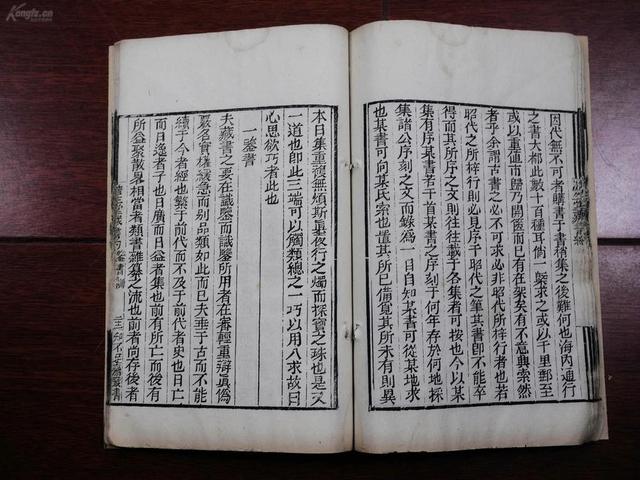 因代無不有者購書于書格集之後難何也海內通行
之書大都此數十百種耳倘一槩求之或以千里郵至
或以重値市歸乃開篋而已有在架矣有不意興索然
者乎余謂古書之必不可求必非昭代所梓行者也若
昭代之所梓行則必見序于昭代之筆其書卽不能卒
得而其所序之文則往往載于各集者可按也今以某
集有序某書若干首某書之序刻于何年存於何地採
集諸公序刻之文而錄爲一目自知某書可從某地求
也某書可向某氏索也置其所已備覓其所未有則異
本日集重複無煩斯眞夜行之燭而探寶之珠也是又
一道也卽此三端可以觸類總之一巧以用八求故曰
心思欲巧者此也
一鑒書
夫藏書之要在識鑒而識鑒所用者在審輕重辨眞僞
覈名實權緩急而别品類如此而已夫垂于古而不能
續于今者經也繁于前代而不及于前代者史也日亡
而日逸者子也日廣而日益者集也前有所亡而後有
所益聚散畧相當者類書雜纂之流也前者尚存後者
Kongfz.cn